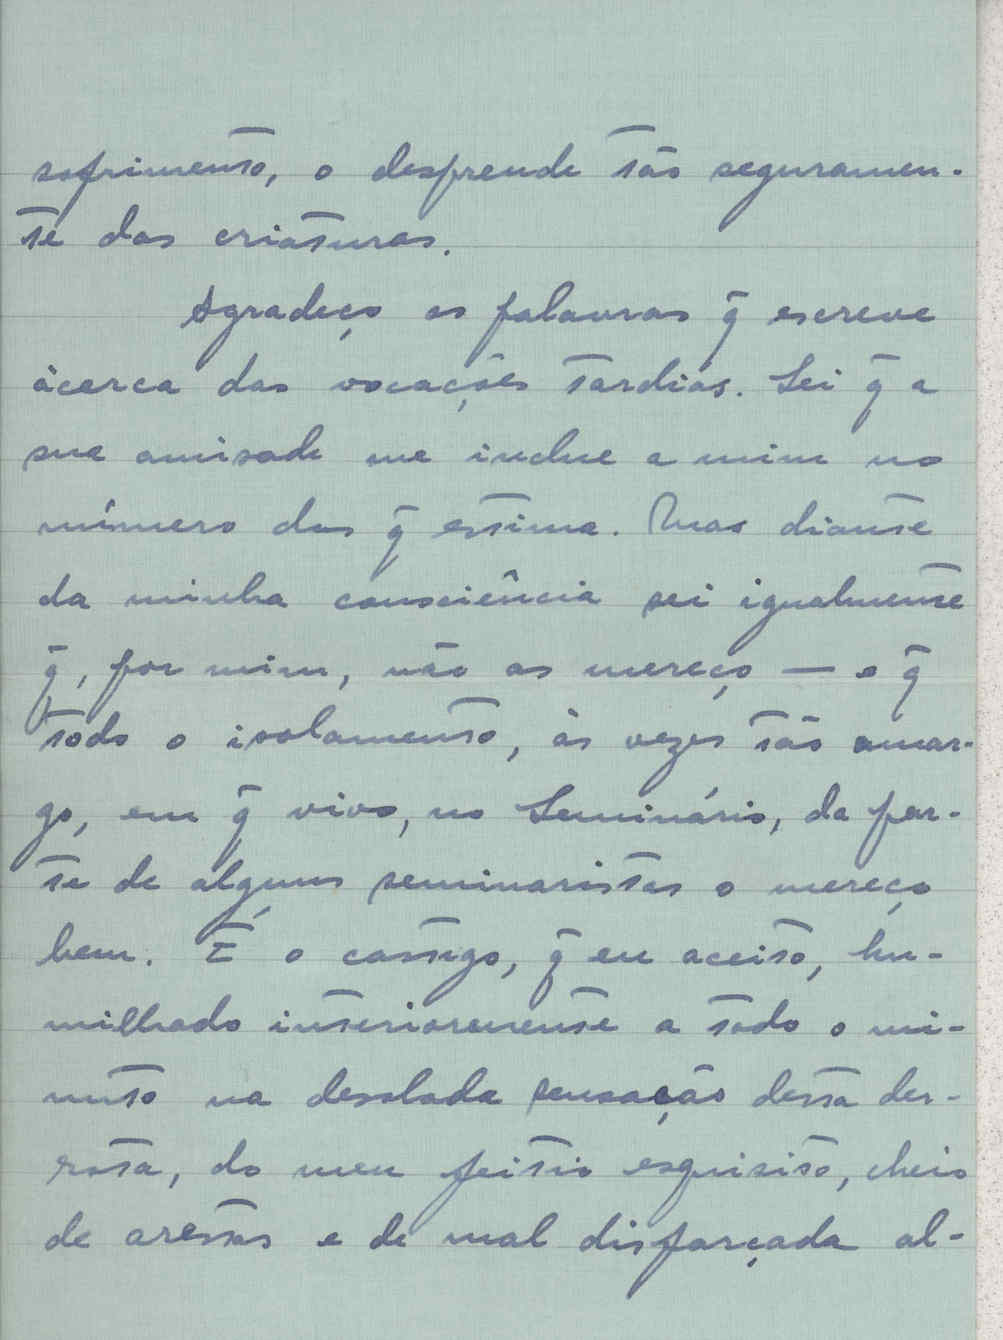 sofrimento, o desprende tão seguramen-
te das criaturas.
Agradeço as palavras q̃ escreve
àcerca das vocações tardias. Sei q̃ a
sua amisade me inclue a mim no
número das q̃ estima. Mas diante
da minha consciência sei igualmente
q̃, por mim, não as mereço — e q̃
todo o isolamento, às vezes tão amar-
go, em q̃ vivo, no Seminário, da par-
te de alguns seminaristas o mereço
bem. É o castigo, q̃ eu aceito, hu-
milhado interioremente a todo o mi-
nuto na desolada sensação desta der-
rota, do meu feitio esquisito, cheio
de arestas e de mal disfarçada al-